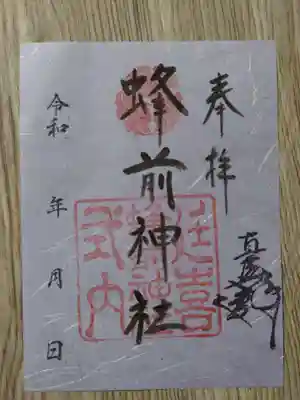 奉拝
蜂前神社
令和　年　月　日
延喜
式内